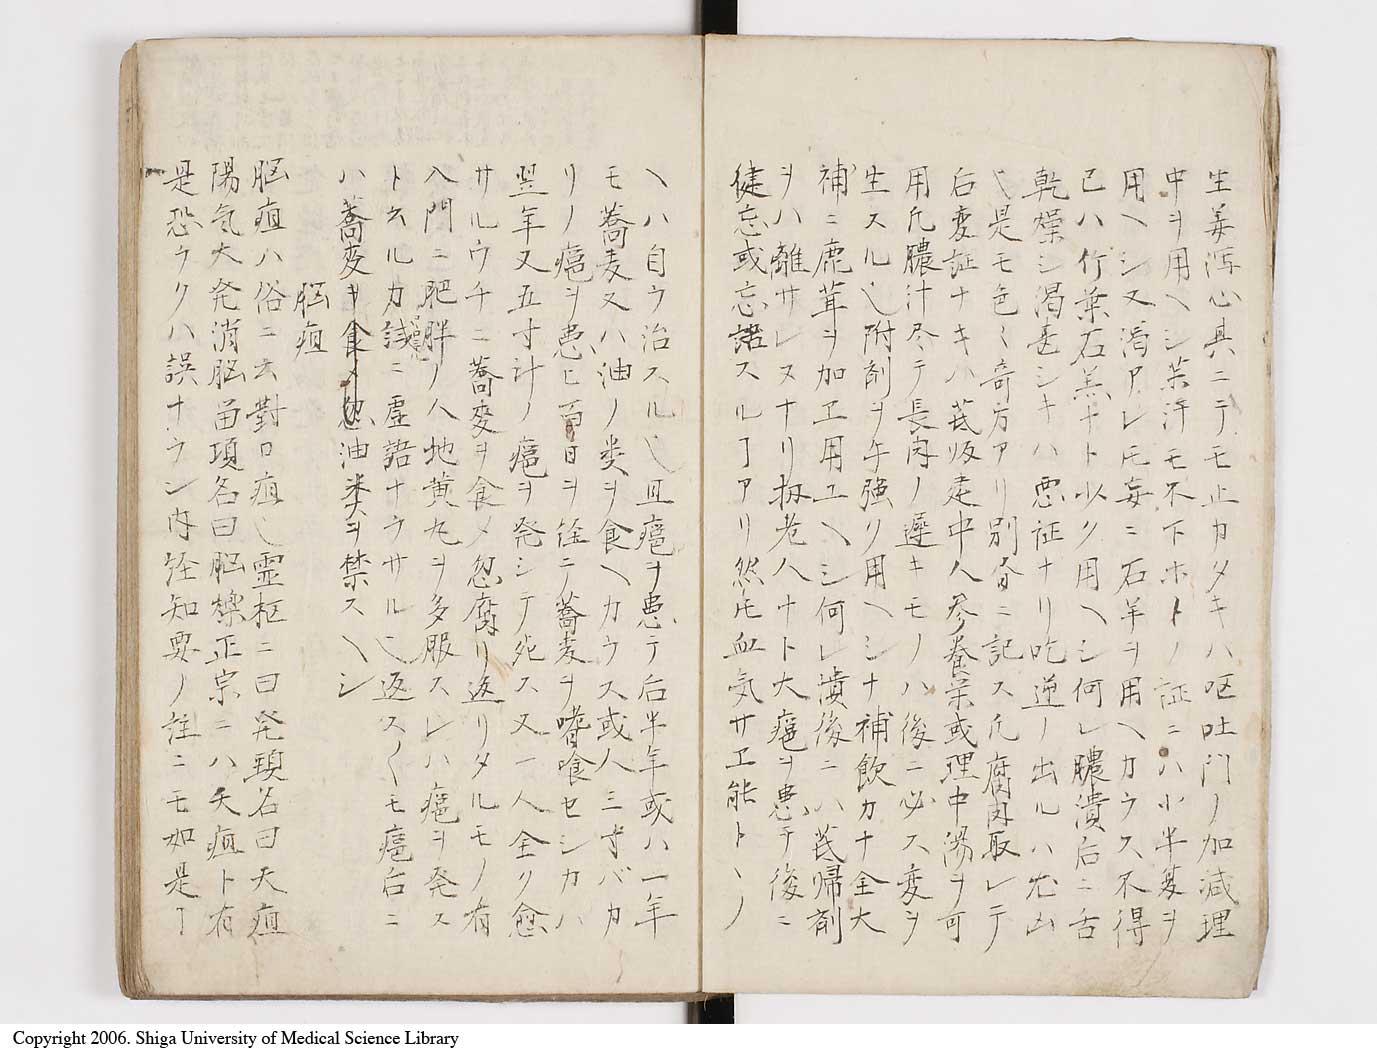 生姜瀉心具ニテモ止カタキハ嘔吐門ノ加減理
中ヲ用ヘシ薬汁モ不下ホトノ証ニハ小半夏ヲ
用ヘシ又渇アレ𪜈妄ニ石羊ヲ用ヘカウス不得
已ハ竹葉石羔ナト少ク用ヘシ何レ膿潰后ニ舌
乾燥シ渇甚シキハ悪証ナリ吃逆ノ出ルハ尤凶
也是モ色〻奇方アリ別省ニ記ス凡腐肉取レテ
后変証ナキハ芪皈建中人参養栄或理中湯ヲ可
用凡膿汁尽テ長肉ノ遲キモノハ後ニ必ス変ヲ
生スル也附剤ヲ午強ク用ヘシナ補飲カナ全大
補ニ鹿茸ヲ加エ用エヘシ何レ潰後ニハ芪帰剤
ヲハ離サレヌナリ扨老人ナト大瘡ヲ患テ後ニ
健忘或忘語スルヿアリ然𪜈血気サエ能ト丶ノ
ヘハ自ウ治スル也且瘡ヲ患テ后半年或ハ一年
モ蕎麦又ハ油ノ类ヲ食ヘカウス或人三寸バカ
リノ瘡ヲ患ヒ百日ヲ経テ蕎麦ヲ嗜喰セシカハ
翌年又五寸計ノ瘡ヲ発シテ死ス又一人全リ愈
サルウチニ蕎麥ヲ食メ忽腐リ返リタルモノ有
入門ニ肥胖ノ人地黄丸ヲ多服スレハ瘡ヲ発ス
ト云ルカ誠ニ虚語ナウサル也返ス〱モ瘡后ニ
ハ蕎麥ヲ食メ油类ヲ禁スヘシ
脳疽
脳疽ハ俗ニ云對口疽也霊枢ニ曰発頸名曰夭疽
陽気大発消脳畄項名曰脳爍正宗ニハ夭疽ト有
是恐ウクハ誤ナウン内経知要ノ註ニモ如是ヿ
Copyright 2006. Shiga University of Medical Science Library